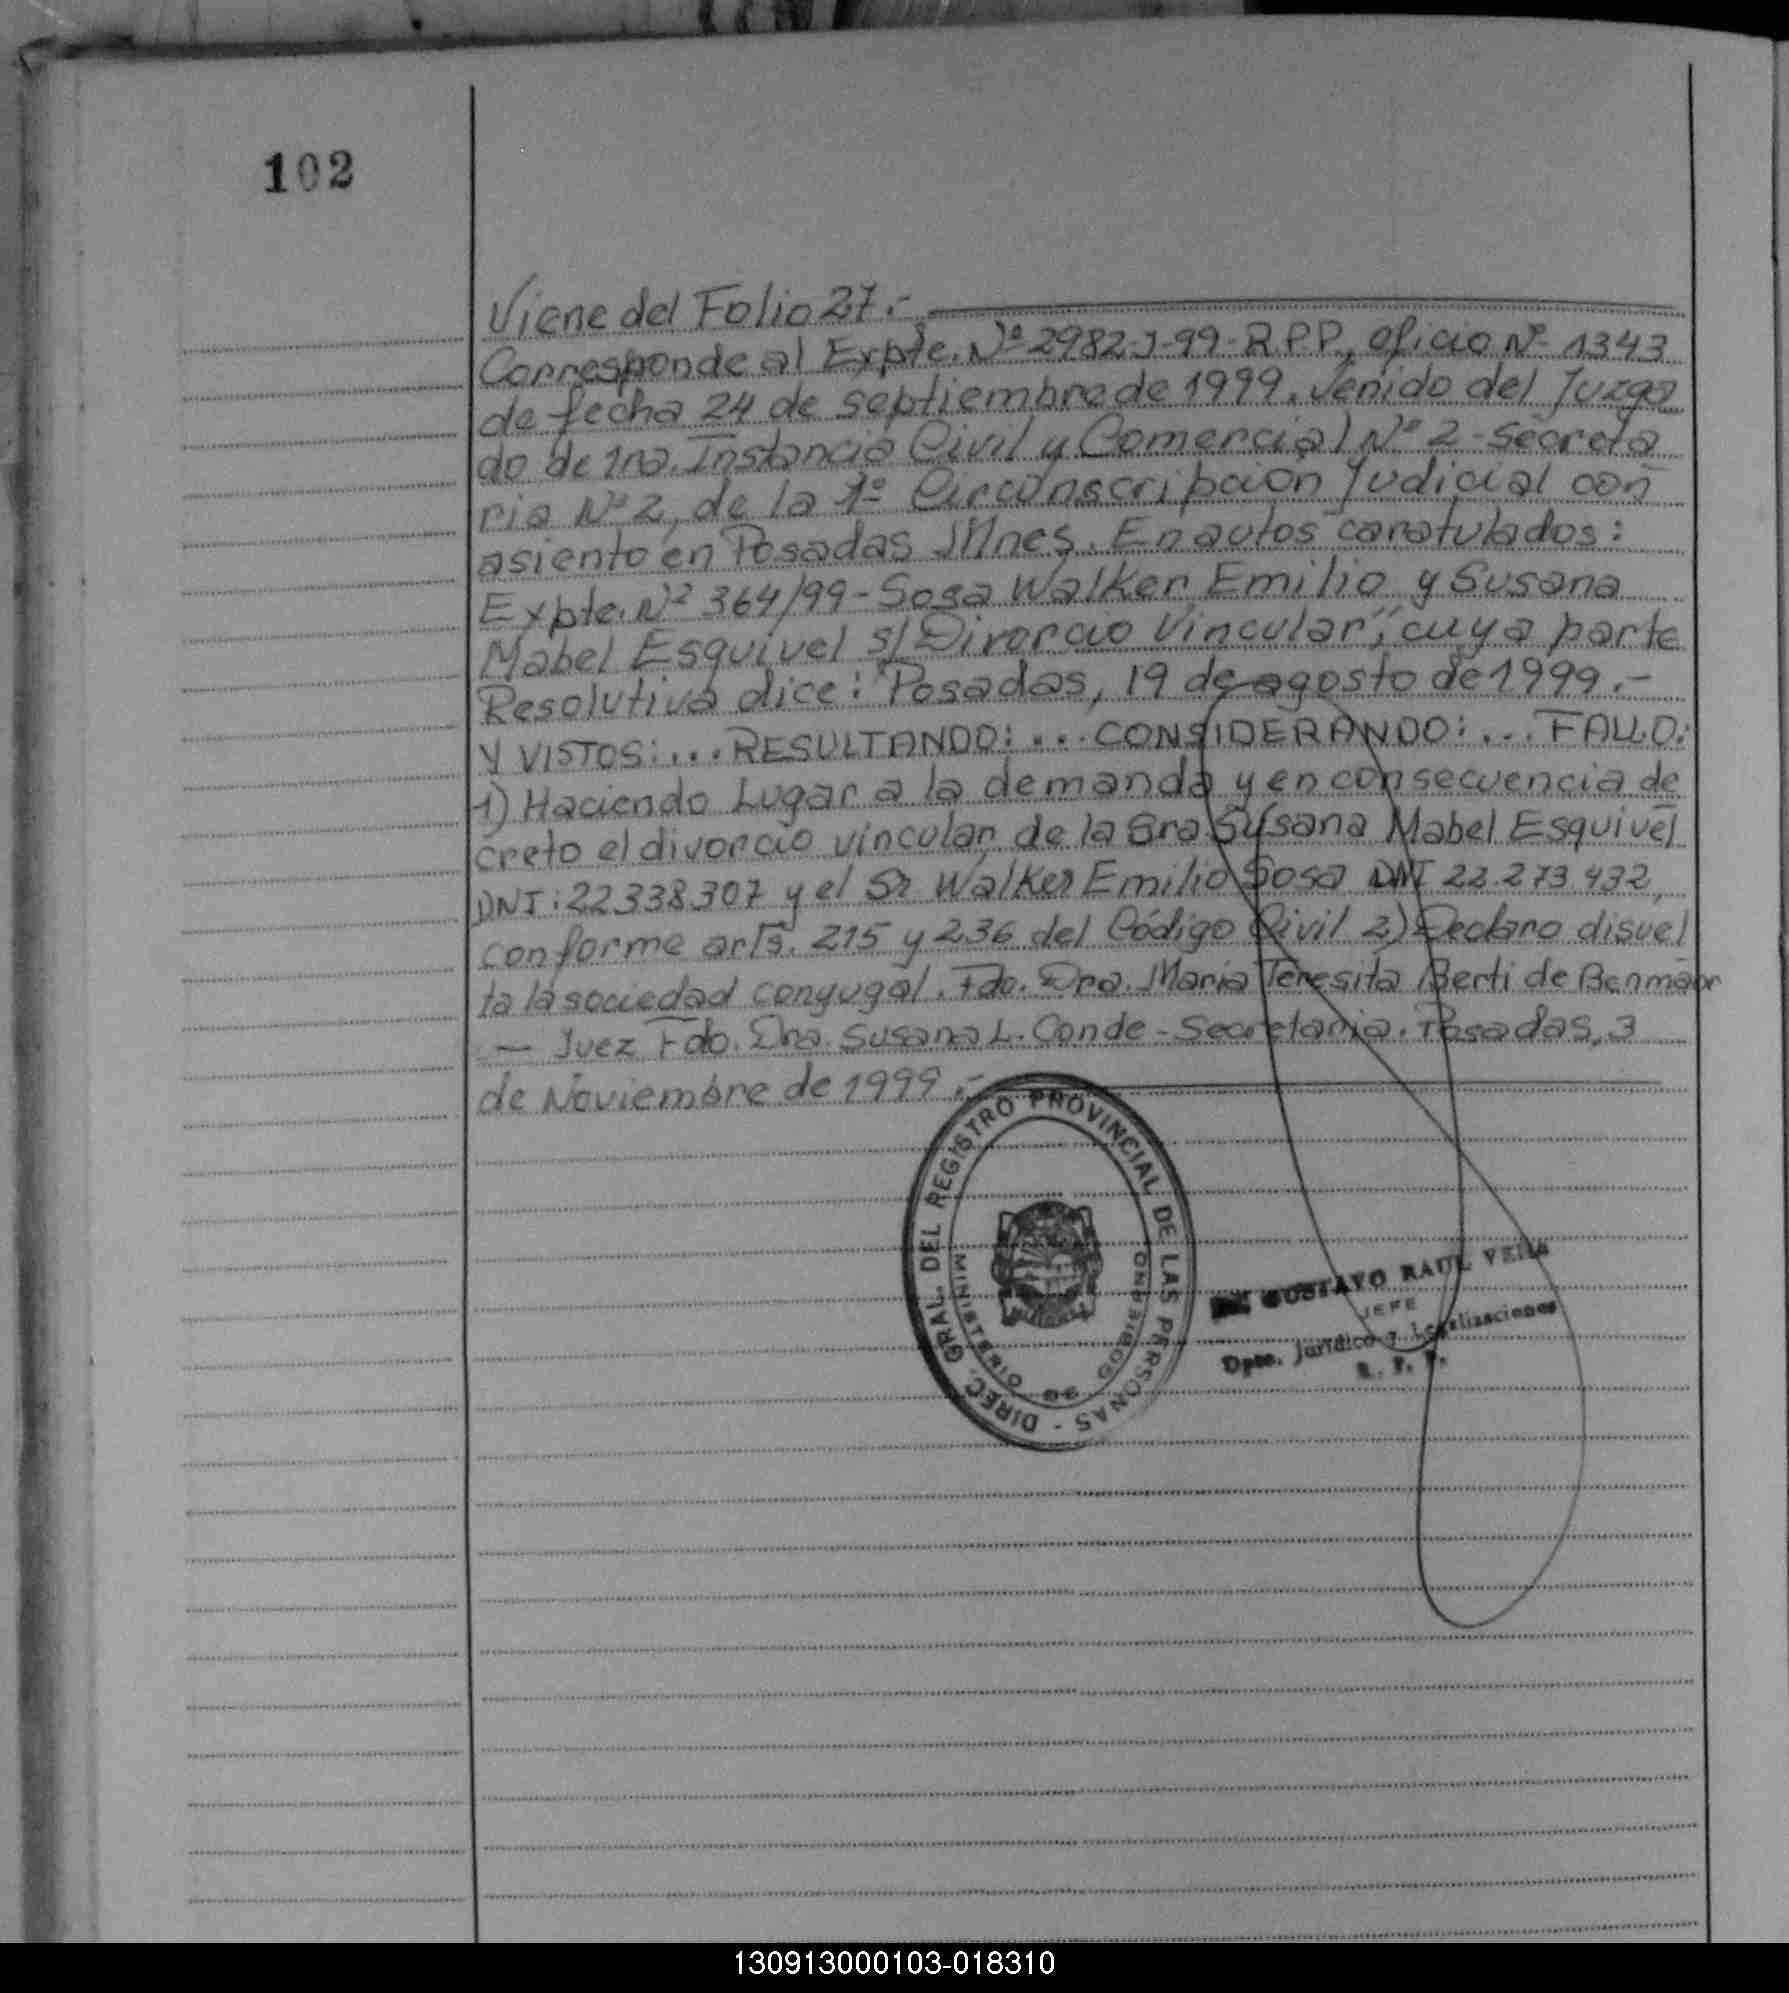 102
Viene del Folio 27.-
Corresponde al Expte. Nº 2982-J-99-R.P.P, oficio Nº 1343
de fecha 24 de septiembre de 1999. Venido del Juzga
do de 1ra. Instancia Civil y Comercial Nº 2 - Secreta
ria Nº 2, de la 1º Circunscripción Judicial con
asiento en Posadas Mnes. En autos caratulados:
Expte. Nº 364/99 - Sosa Walker Emilio y Susana
Mabel Esquivel s/ Divorcio Vincular", cuya parte
Resolutiva dice: "Posadas, 19 de agosto de 1999.-
Y VISTOS: ... RESULTANDO: ... CONSIDERANDO: ... FALLO:
1) Haciendo Lugar a la demanda y en consecuencia de
creto el divorcio vincular de la Sra Susana Mabel Esquivel
DNI: 22338.307 y el Sr Walker Emilio Sosa DNI 22.273.432,
conforme arts. 215 y 236 del Código Civil 2) Declaro disuel
ta la sociedad conyugal. Fdo. Dra. María Teresita Berti de Benmaor
- Juez Fdo. Dra. Susana L. Conde - Secretaria. Posadas, 3
de Noviembre de 1999.-
DIREC. GRAL. DEL REGISTRO PROVINCIAL DE LAS PERSONAS -
MINISTERIO DE GOBIERNO
GUSTAVO RAUL
JEFE
Dpto. Jurídico y Legalizaciones
R. P. P.
130913000103-018310